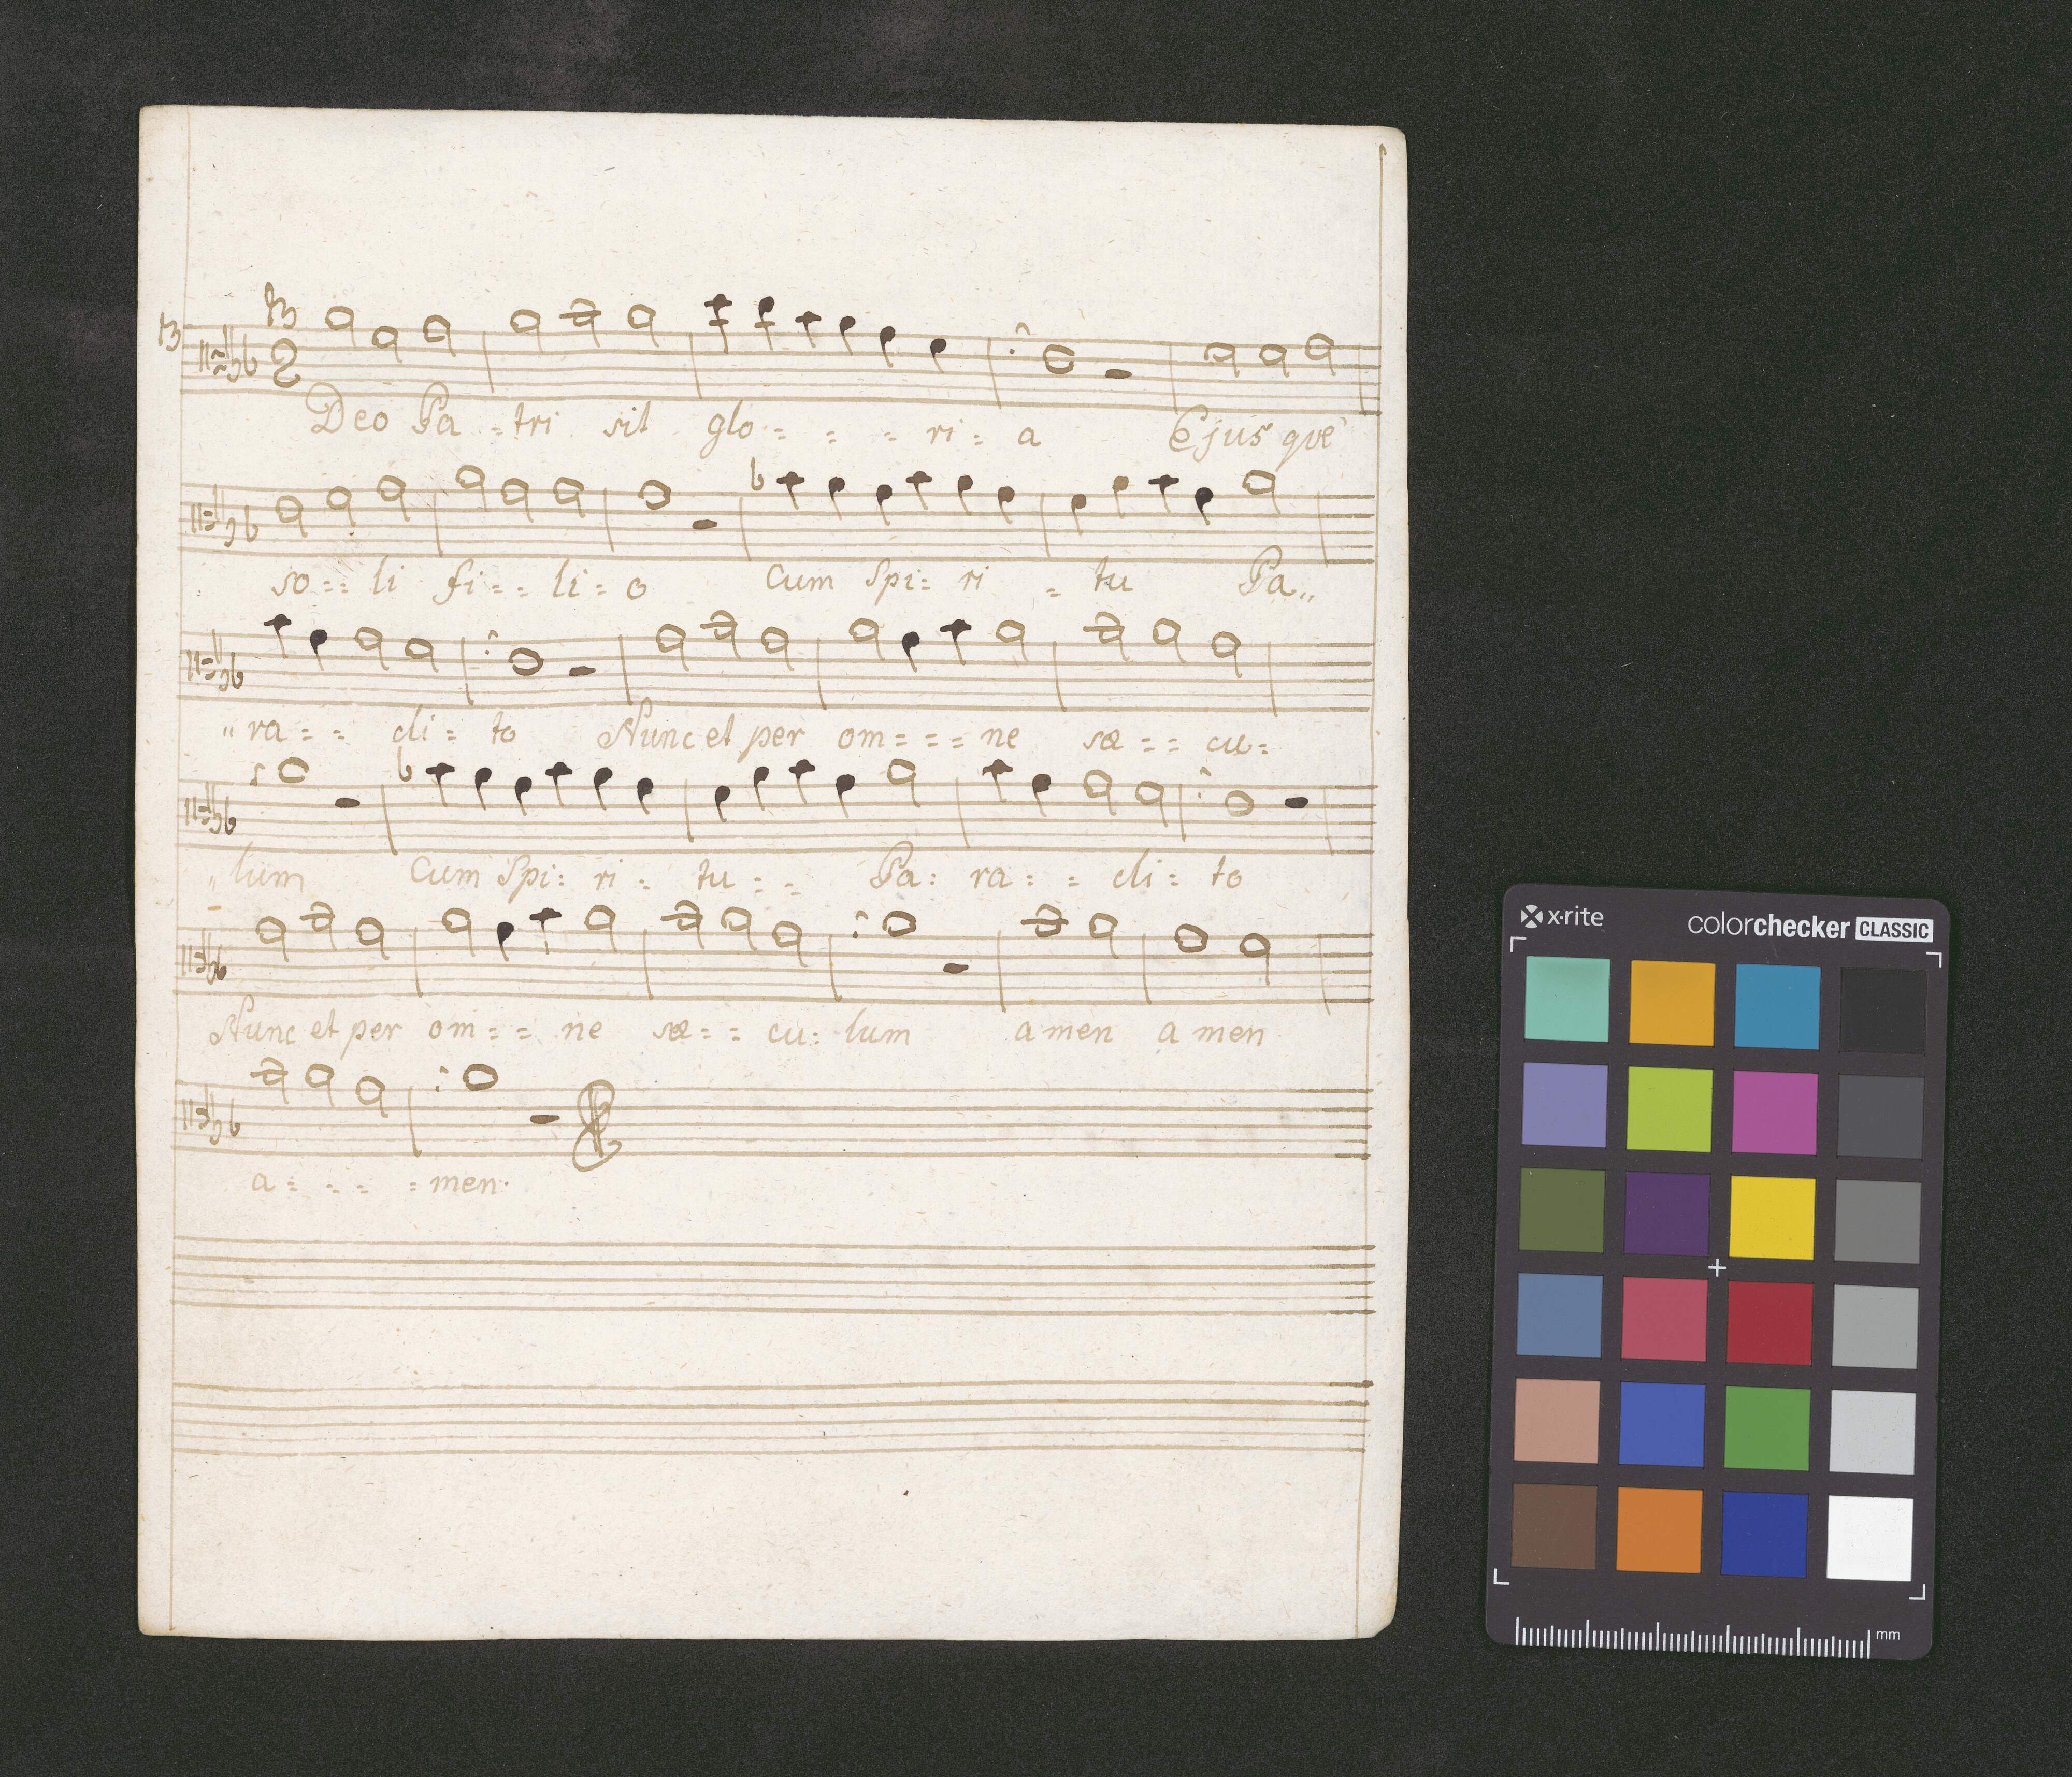 Deo Pa = tri sit glo = = = ri = a Ejus que
so == li fi == li = o Cum Spi = ri = tu Pa„
„ra = = cli = to Nunc et per om = = = ne sæ = = cu =
„lum Cum Spi: ri = tu = = Pa: ra: = cli = to
Nunc et per om = = ne sæ = = cu: lum amen amen
a = = = = men.
x·rite colorchecker CLASSIC
mm